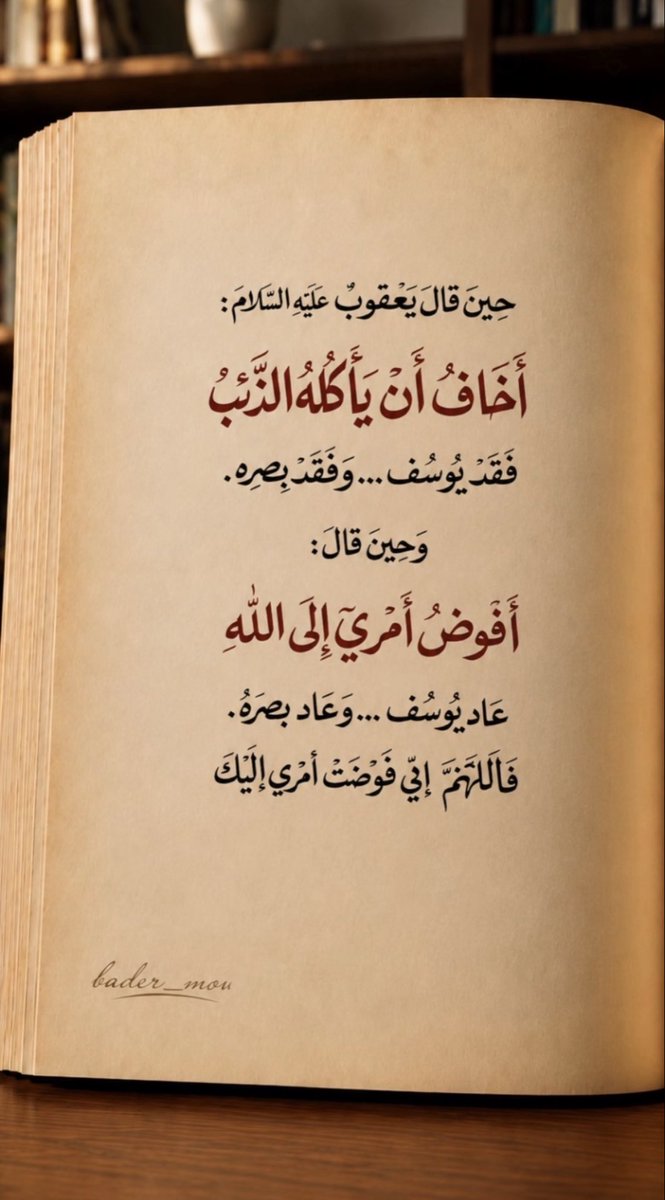 حِينَ قَالَ يَعْقوبٌ عَلَيْهِ السَّلَامَ:
أَخَافُ أَنْ يَأَكُلهُ الذَّئبُ
فَقَدْ يُوسُف...وَفَقَدْ بِصرِه.
وَحِينَ قَالَ:
أَفْوضُ أَمْرِيَ إِلَى اللهِ
عَاد يُوسُف...وَعَاد بصرَهُ.
فَاَللهَمَّ إنِّي فَوْضَتْ أمْرِي إلَيْكَ
bader_mou